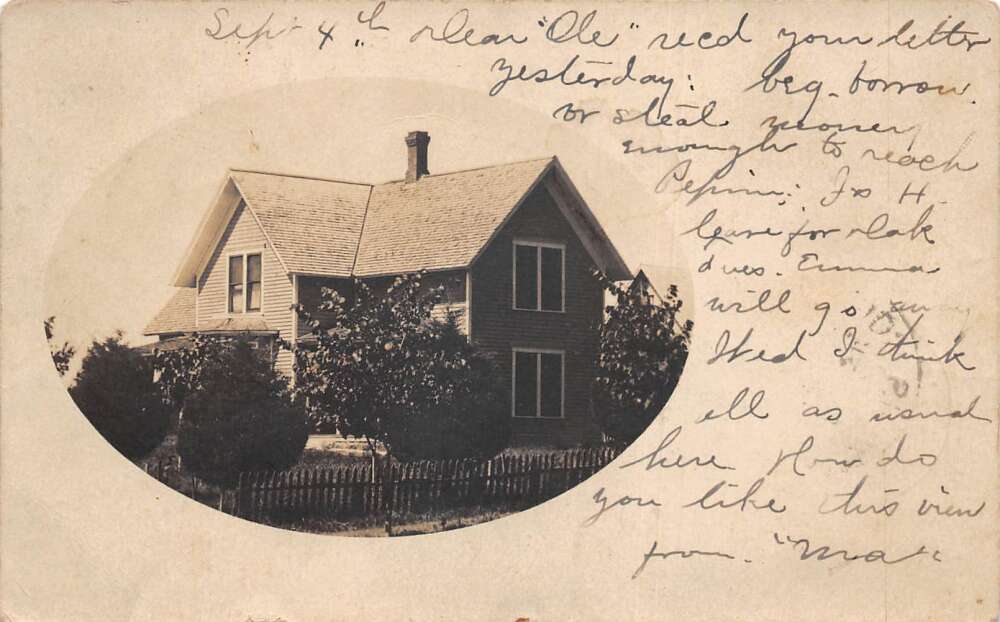 Sept 4th Dear "Ole" recd your letter
yesterday: beg. borrow.
or steal money
enough to reach
Pepin:
leave for Oak
dues. Emma
will go away
Wed I think
all as usual
here How do
you like this view
from. "Ma"